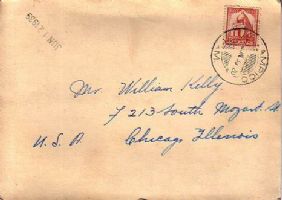 JUN 12 1929
Mr. William Kelly
7213 South Mozart St
U.S.A. Chicago Illinois